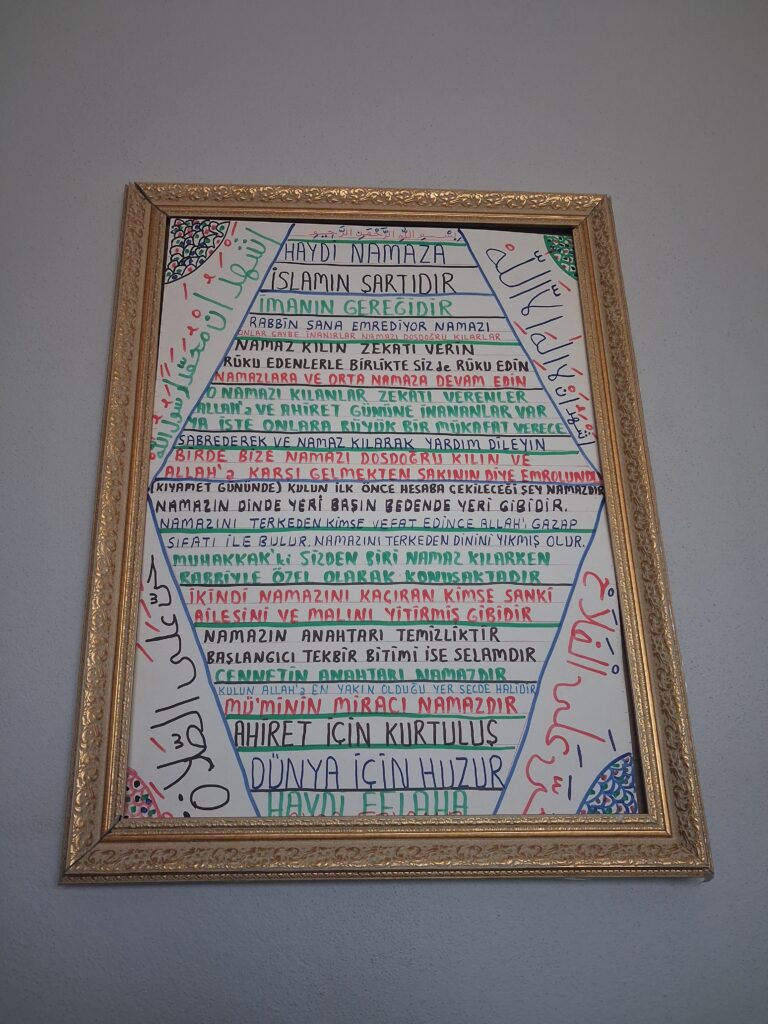 بسم الله الرحمن الرحيم
HAYDİ NAMAZA
İSLAMIN ŞARTIDIR
İMANIN GEREĞİDİR
RABBİN SANA EMREDİYOR NAMAZI
ONLAR GAYBE İNANIRLAR NAMAZI DOSDOĞRU KILARLAR
NAMAZ KILIN ZEKATI VERİN
RÜKU EDENLERLE BİRLİKTE SİZ de RÜKU EDİN
NAMAZLARA VE ORTA NAMAZA DEVAM EDİN
O NAMAZI KILANLAR ZEKATI VERENLER
ALLAH'a VE AHİRET GÜNÜNE İNANANLAR VAR
YA İŞTE ONLARA BÜYÜK BİR MÜKAFAT VERECE
SABREDEREK VE NAMAZ KILARAK YARDIM DİLEYİN
BİRDE BİZE NAMAZI DOSDOĞRU KILIN VE
ALLAH'a KARŞI GELMEKTEN SAKININ DİYE EMROLUNDU
(KIYAMET GÜNÜNDE) KULUN İLK ÖNCE HESABA ÇEKİLECEĞİ ŞEY NAMAZDIR
NAMAZIN DİNDE YERİ BAŞIN BEDENDE YERİ GİBİDİR.
NAMAZINI TERKEDEN KİMSE VEFAT EDİNCE ALLAH'I GAZAP
SIFATI İLE BULUR. NAMAZINI TERKEDEN DİNİNİ YIKMIŞ OLUR.
MUHAKKAK'ki SİZDEN BİRİ NAMAZ KILARKEN
RABBİYLE ÖZEL OLARAK KONUŞAKTADIR
İKİNDİ NAMAZINI KAÇIRAN KİMSE SANKİ
AİLESİNİ VE MALINI YİTİRMİŞ GİBİDİR
NAMAZIN ANAHTARI TEMİZLİKTİR
BAŞLANGICI TEKBİR BİTİMİ İSE SELAMDIR
CENNETİN ANAHTARI NAMAZDIR
KULUN ALLAH'a EN YAKIN OLDUĞU YER SECDE HALİDİR
MÜ'MİNİN MİRACI NAMAZDIR
AHİRET İÇİN KURTULUŞ
DÜNYA İÇİN HUZUR
HAYDİ FELAHA
اشهد ان محمدا رسول الله
شهد ان لا اله الا الله
حي على الصلاة
حي على الفلاح